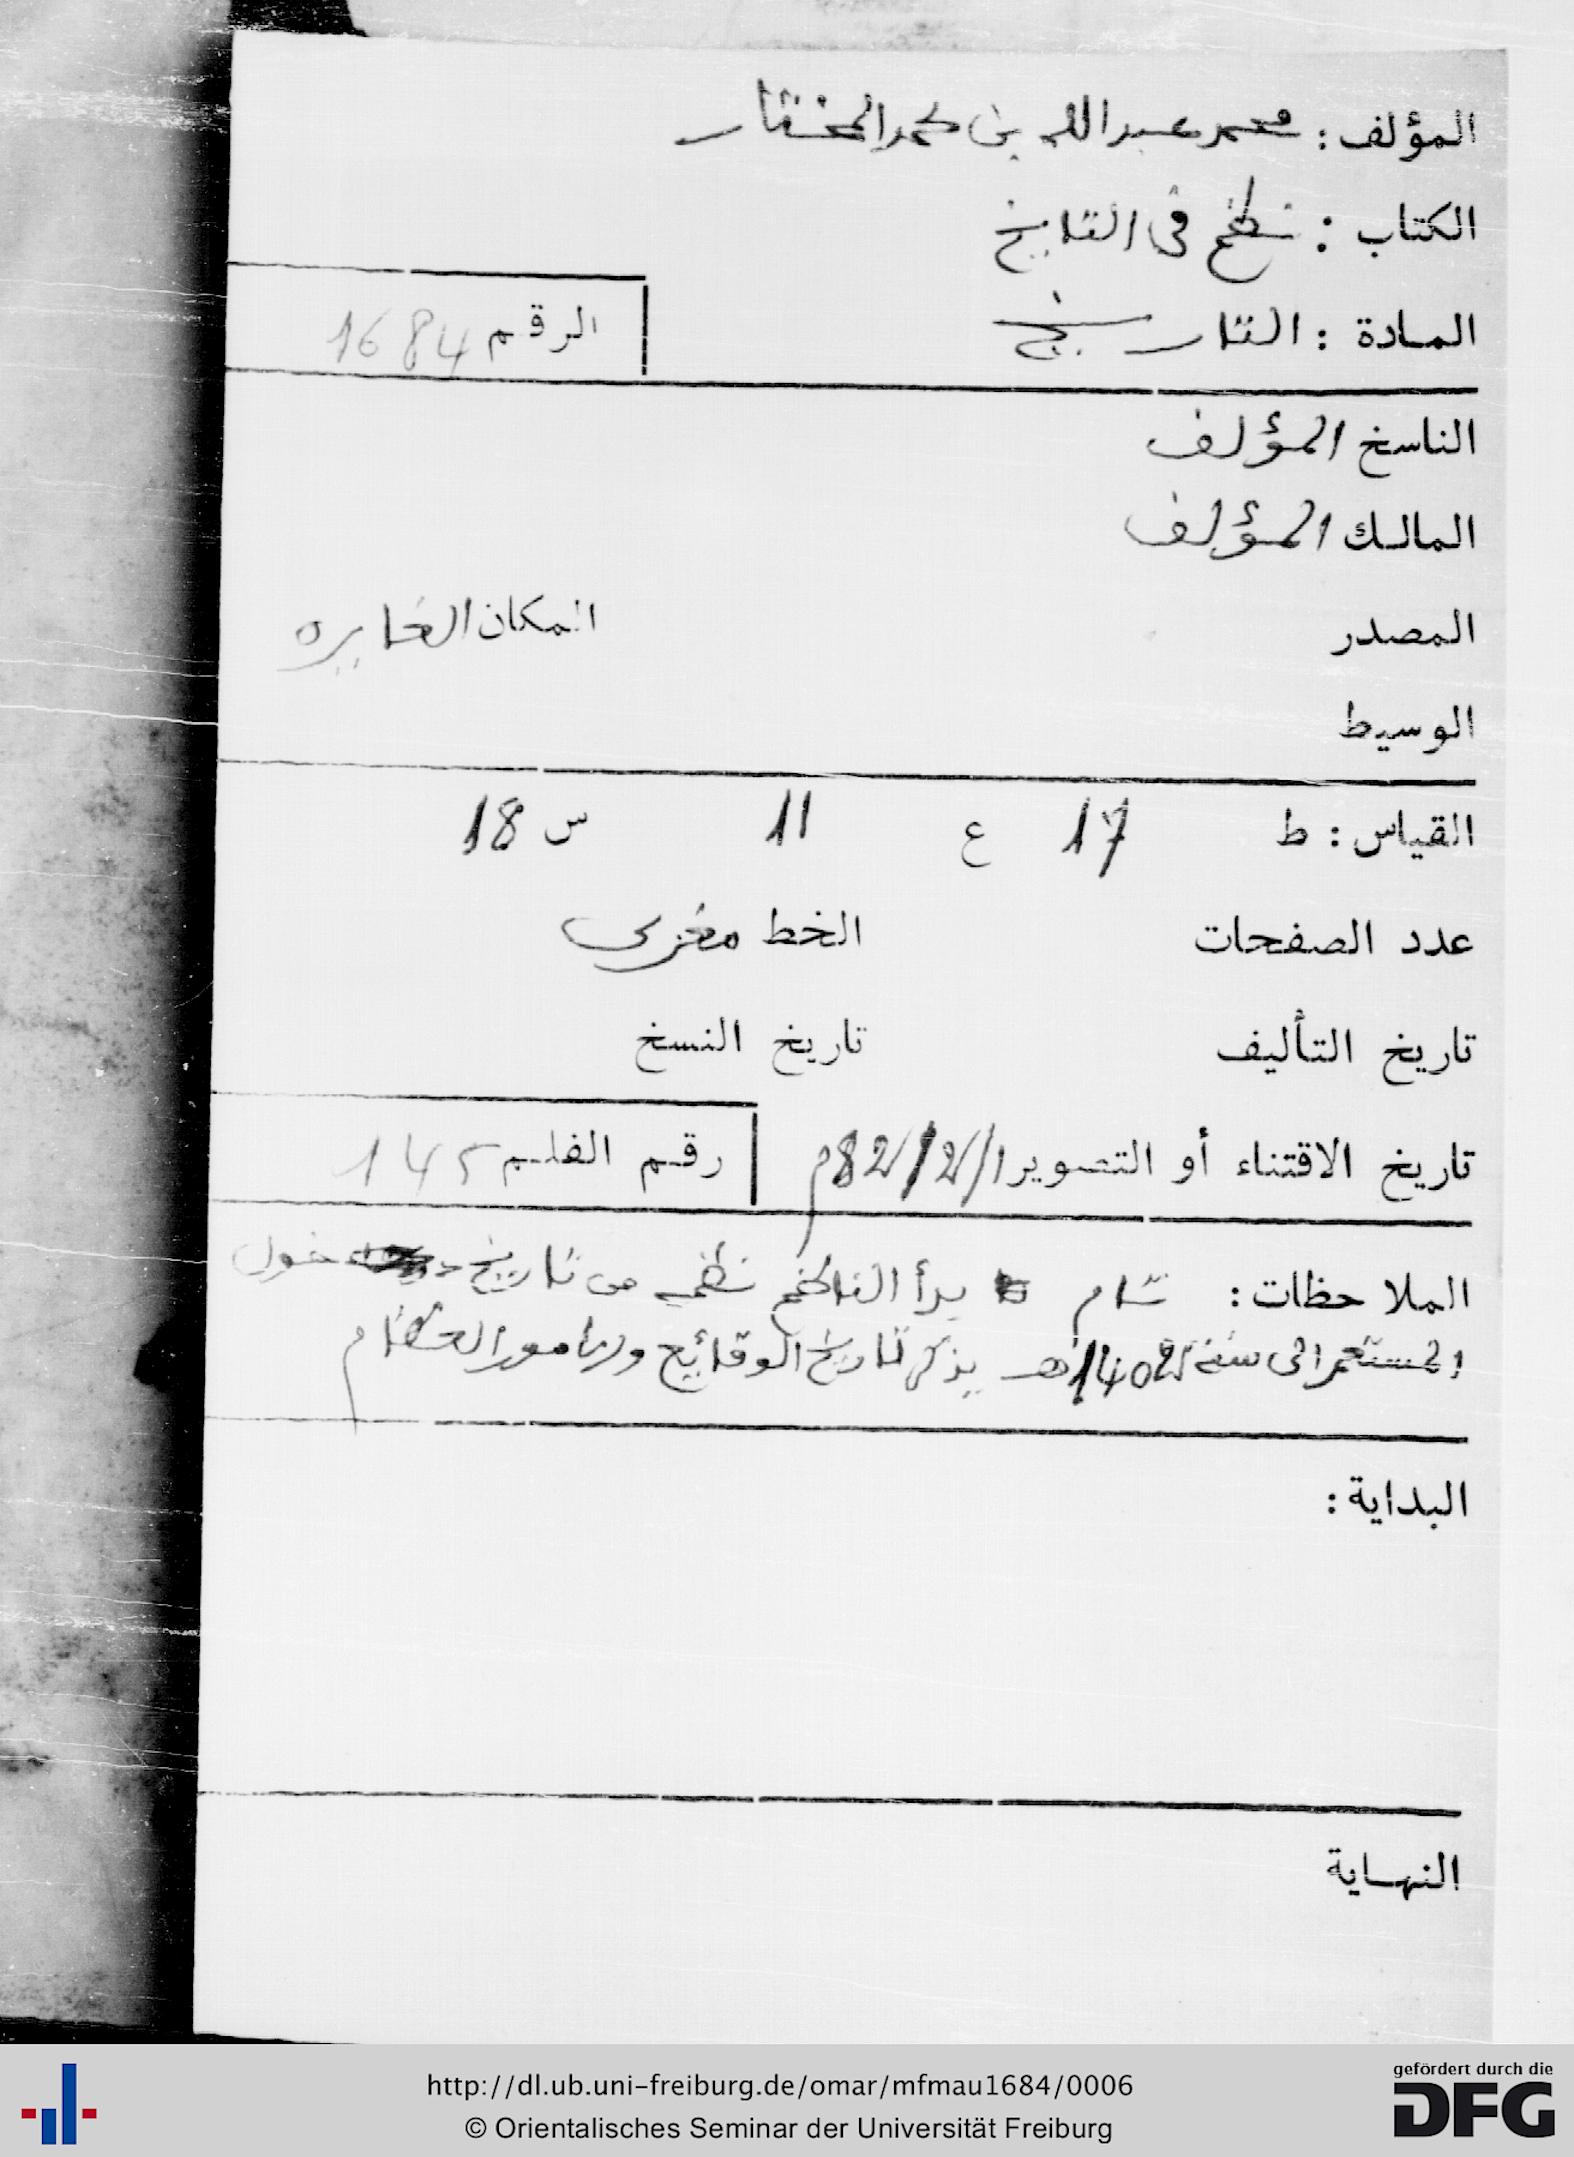 المؤلف : محمد عبد الله بن محمد المختار
الكتاب : نظم فى التاريخ
المادة : التاريخ
الرقم 1684
الناسخ المؤلف
المالك المؤلف
المصدر المكان
الوسيط
القياس : ط 17 ع 11 س 18
عدد الصفحات الخط مغربى
تاريخ التأليف تاريخ النسخ
تاريخ الاقتناء أو التصوير 1/2/82م رقم الفلم 145
الملاحظات : تام يبدأ الناظم نظمه من تاريخ دخول
المستعمر الى سنة 1402هـ يذكر تاريخ الوقائع العظام
البداية :
النهاية
http://dl.ub.uni-freiburg.de/omar/mfmau1684/0006
© Orientalisches Seminar der Universität Freiburg
gefördert durch die
DFG